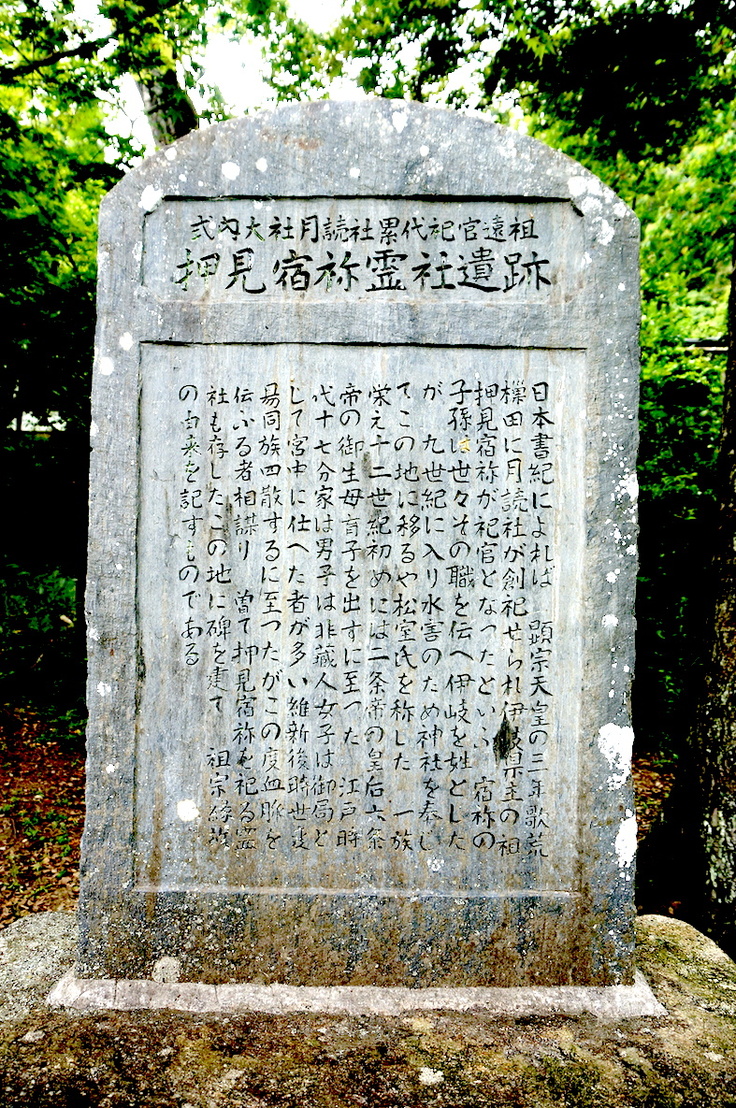 式内大社月読社累代祀官遠祖
押見宿祢霊社遺跡
日本書紀によれば 顕宗天皇の三年歌荒
樔田に月読社が創祀せられ伊岐県主の祖
押見宿祢が祀官となったといふ 宿祢の
子孫は世々その職を伝へ伊岐を姓とした
が 九世紀に入り水害のため神社を奉じ
てこの地に移るや松室氏を称した 一族
栄え十二世紀初めには二条帝の皇后六条
帝の御生母育子を出すに至つた 江戸時
代十七分家は男子は非蔵人女子は御局と
して宮中に仕へた者が多い維新後時世変
易同族四散するに至つたがこの度血脈を
伝ふる者相謀り 曽て押見宿祢を祀る霊
社も存したこの地に碑を建て 祖宗縁族
の由来を記すものである